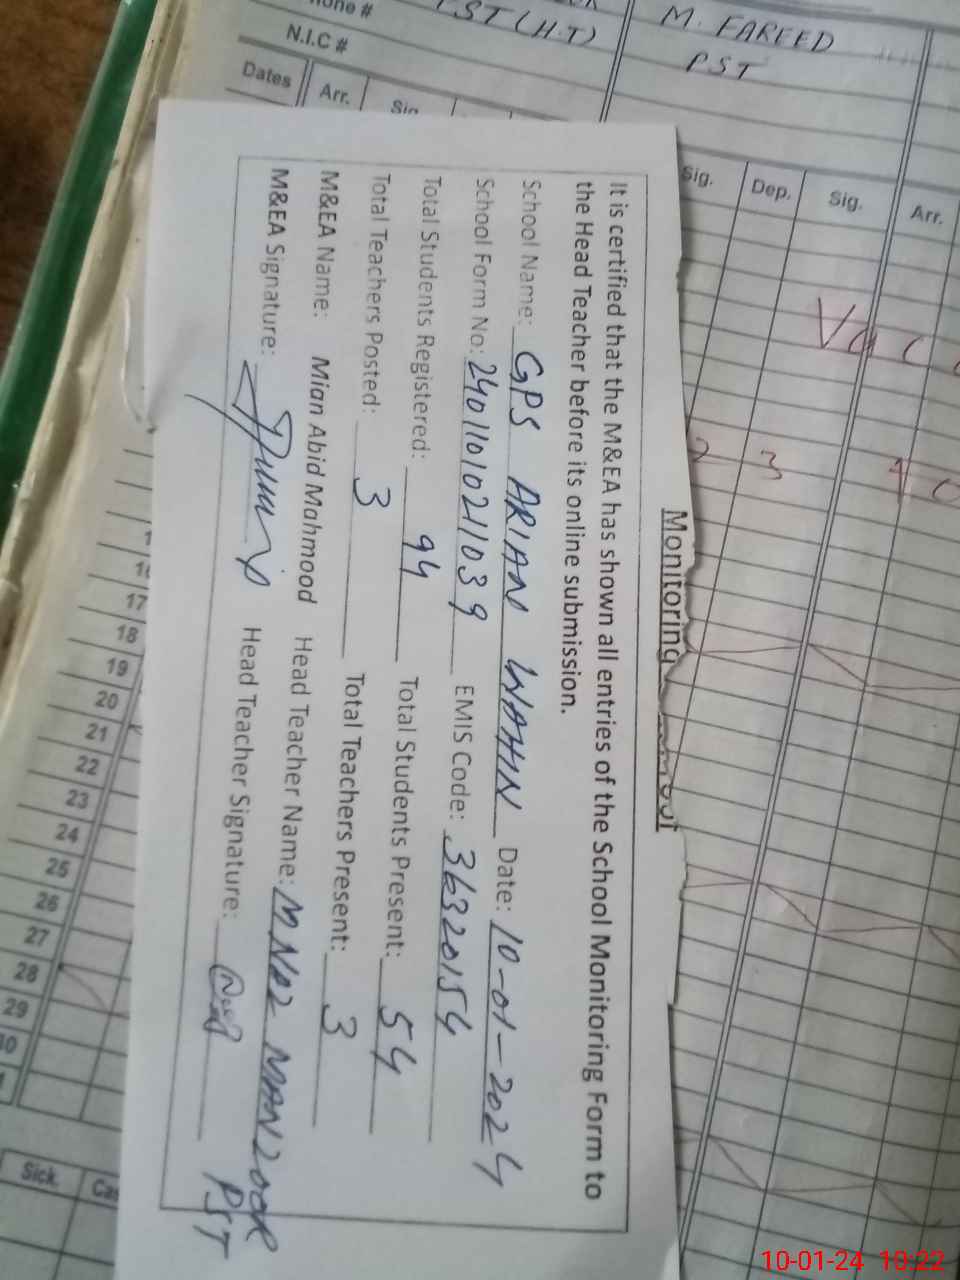 N.I.C #
Dates Arr.
ST(H.T)
M. FAREED
PST
Sig. Dep. Sig. Arr.
Monitoring
It is certified that the M&EA has shown all entries of the School Monitoring Form to
the Head Teacher before its online submission.
School Name: GPS ARIAN WAHN Date: 10-01-2024
School Form No: 2401101021039 EMIS Code: 36320154
Total Students Registered: 94 Total Students Present: 54
Total Teachers Posted: 3 Total Teachers Present: 3
M&EA Name: Mian Abid Mahmood Head Teacher Name:
M&EA Signature: Head Teacher Signature:
PST
17
18
19
20
21
22
23
24
25
26
27
28
29
Sick
10-01-24 10:22